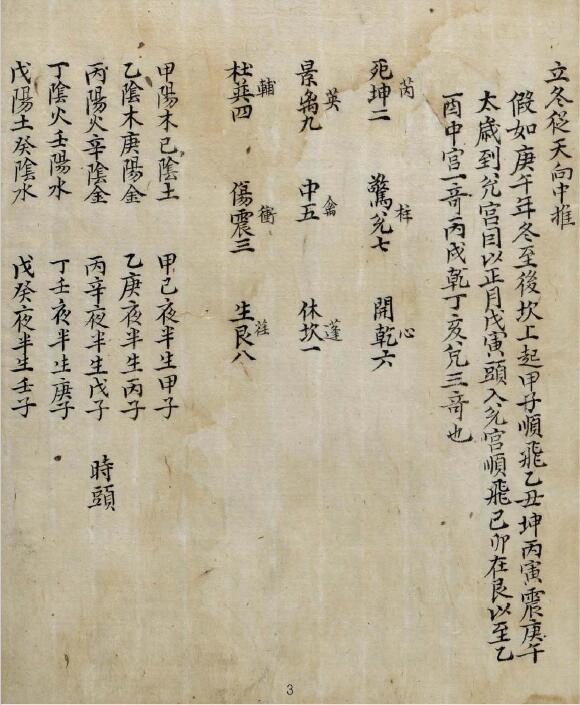 立冬從天向中推
假如庚午年冬至後坎上起甲子順飛乙丑坤丙寅震庚午
太歲到兊宮因以正月戊寅頭入兊宮順飛己卯在艮以至乙
酉中宮一奇丙戌乾丁亥兊三奇也
芮 柱 心
死坤二 驚兊七 開乾六
英 禽 蓬
景离九 中五 休坎一
輔 衝
杜巽四 傷震三 生艮八
甲陽木己陰土 甲己夜半生甲子
乙陰木庚陽金 乙庚夜半生丙子
丙陽火辛陰金 丙辛夜半生戊子 時頭
丁陰火壬陽水 丁壬夜半生庚子
戊陽土癸陰水 戊癸夜半生壬子
3